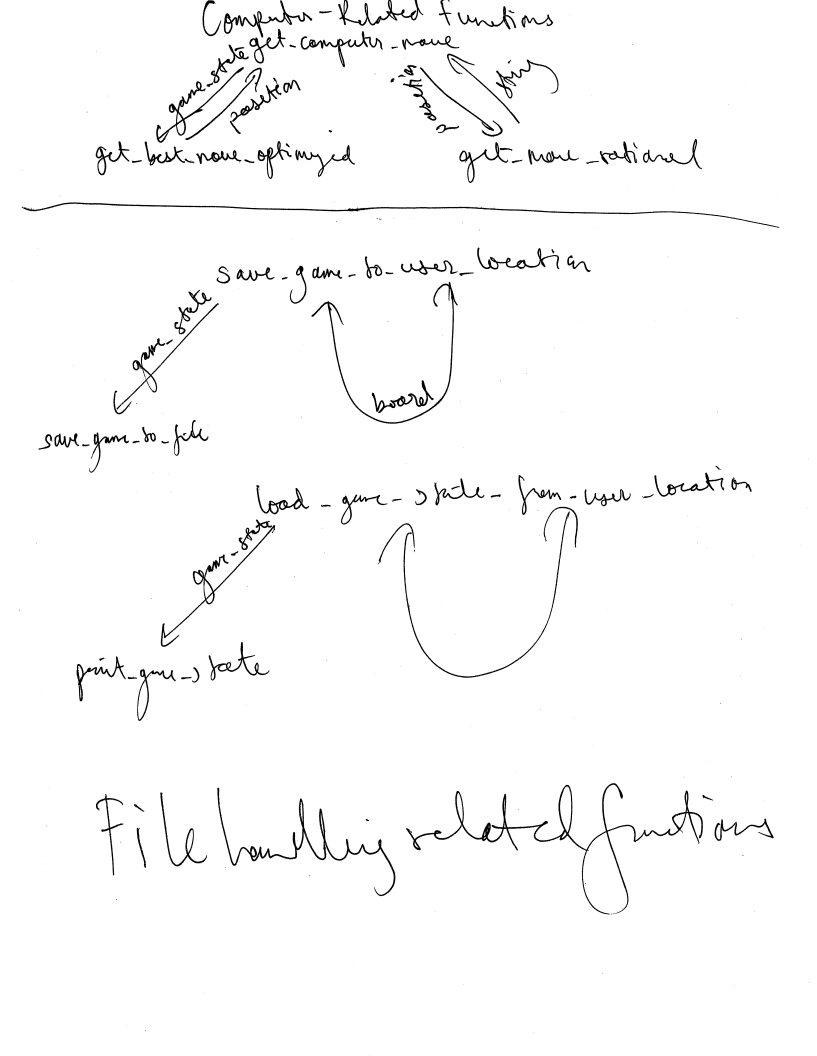 Computer-Related functions
get_computer_move
game_state
position
position
string
get_best_move_optimized
get_move_rational
save_game_to_user_location
game_state
board
save_game_to_file
load_game_state_from_user_location
game_state
print_game_state
File handling related functions